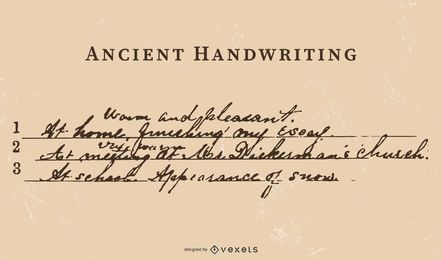 ANCIENT HANDWRITING
Warm and pleasant.
1 At home, finishing my essay.
2 At meeting at Mr. Dickerman's church.
3 At school. Appearance of snow.
designed by vexels